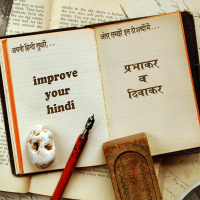 अपनी हिन्दी सुधारें...
improve
your
hindi
अंतर समझें इन दो शब्दों में...
प्रभाकर
व
दिवाकर